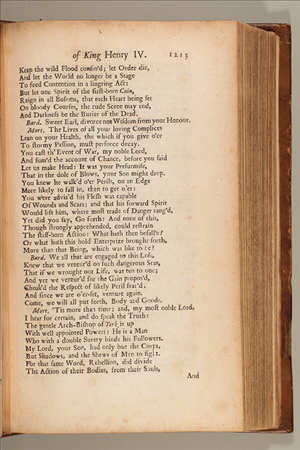 of King Henry IV. 1213
Keep the wild Flood confin'd; let Order die,
And let the World no longer be a Stage
To feed Contention in a lingring Act:
But let one Spirit of the first-born Cain,
Reign in all Bosoms, that each Heart being set
On bloody Courses, the rude Scene may end,
And Darkness be the Burier of the Dead.
Bard. Sweet Earl, divorce not Wisdom from your Honour.
Mort. The Lives of all your loving Complices
Lean on your Health, the which if you give o'er
To stormy Passion, must perforce decay.
You cast th' Event of War, my noble Lord,
And summ'd the account of Chance, before you said
Let us make Head: It was your Presurmise,
That in the dole of Blows, your Son might drop.
You knew he walk'd o'er Perils, on an Edge
More likely to fall in, then to get o'er:
You were advis'd his Flesh was capable
Of Wounds and Scars; and that his forward Spirit
Would lift him, where most trade of Danger rang'd,
Yet did you say, Go forth: And none of this,
Though strongly apprehended, could restrain
The stiff-born Action: What hath then befall'n?
Or what hath this bold Enterprize brought forth,
More than that Being, which was like to be?
Bard. We all that are engaged to this Loss,
Knew that we ventur'd on such dangerous Seas,
That if we wrought out Life, was ten to one;
And yet we ventur'd for the Gain propos'd,
Choak'd the Respect of likely Peril fear'd.
And since we are o'er-set, venture again.
Come, we will all put forth, Body, and Goods.
Mort. 'Tis more than time; and, my most noble Lord,
I hear for certain, and do speak the Truth:
The gentle Arch-Bishop of York is up
With well appointed Powers: He is a Man
Who with a double Surety binds his Followers.
My Lord, your Son, had only but the Corps,
But Shadows, and the Shews of Men to fight.
For that same Word, Rebellion, did divide
The Action of their Bodies, from their Souls,
And